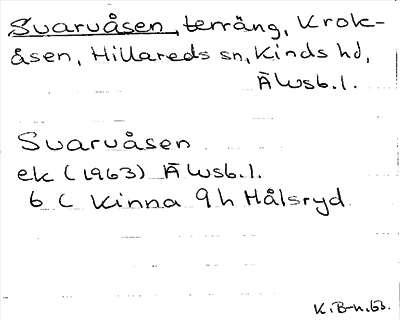 Svarvåsen, terräng, Krok-
åsen, Hillareds sn, Kinds hd,
Älvsb. l.
Svarvåsen
ek (1963) Älvsb. l.
6 C Kinna 9 h Hålsryd
K. B-n. 63.